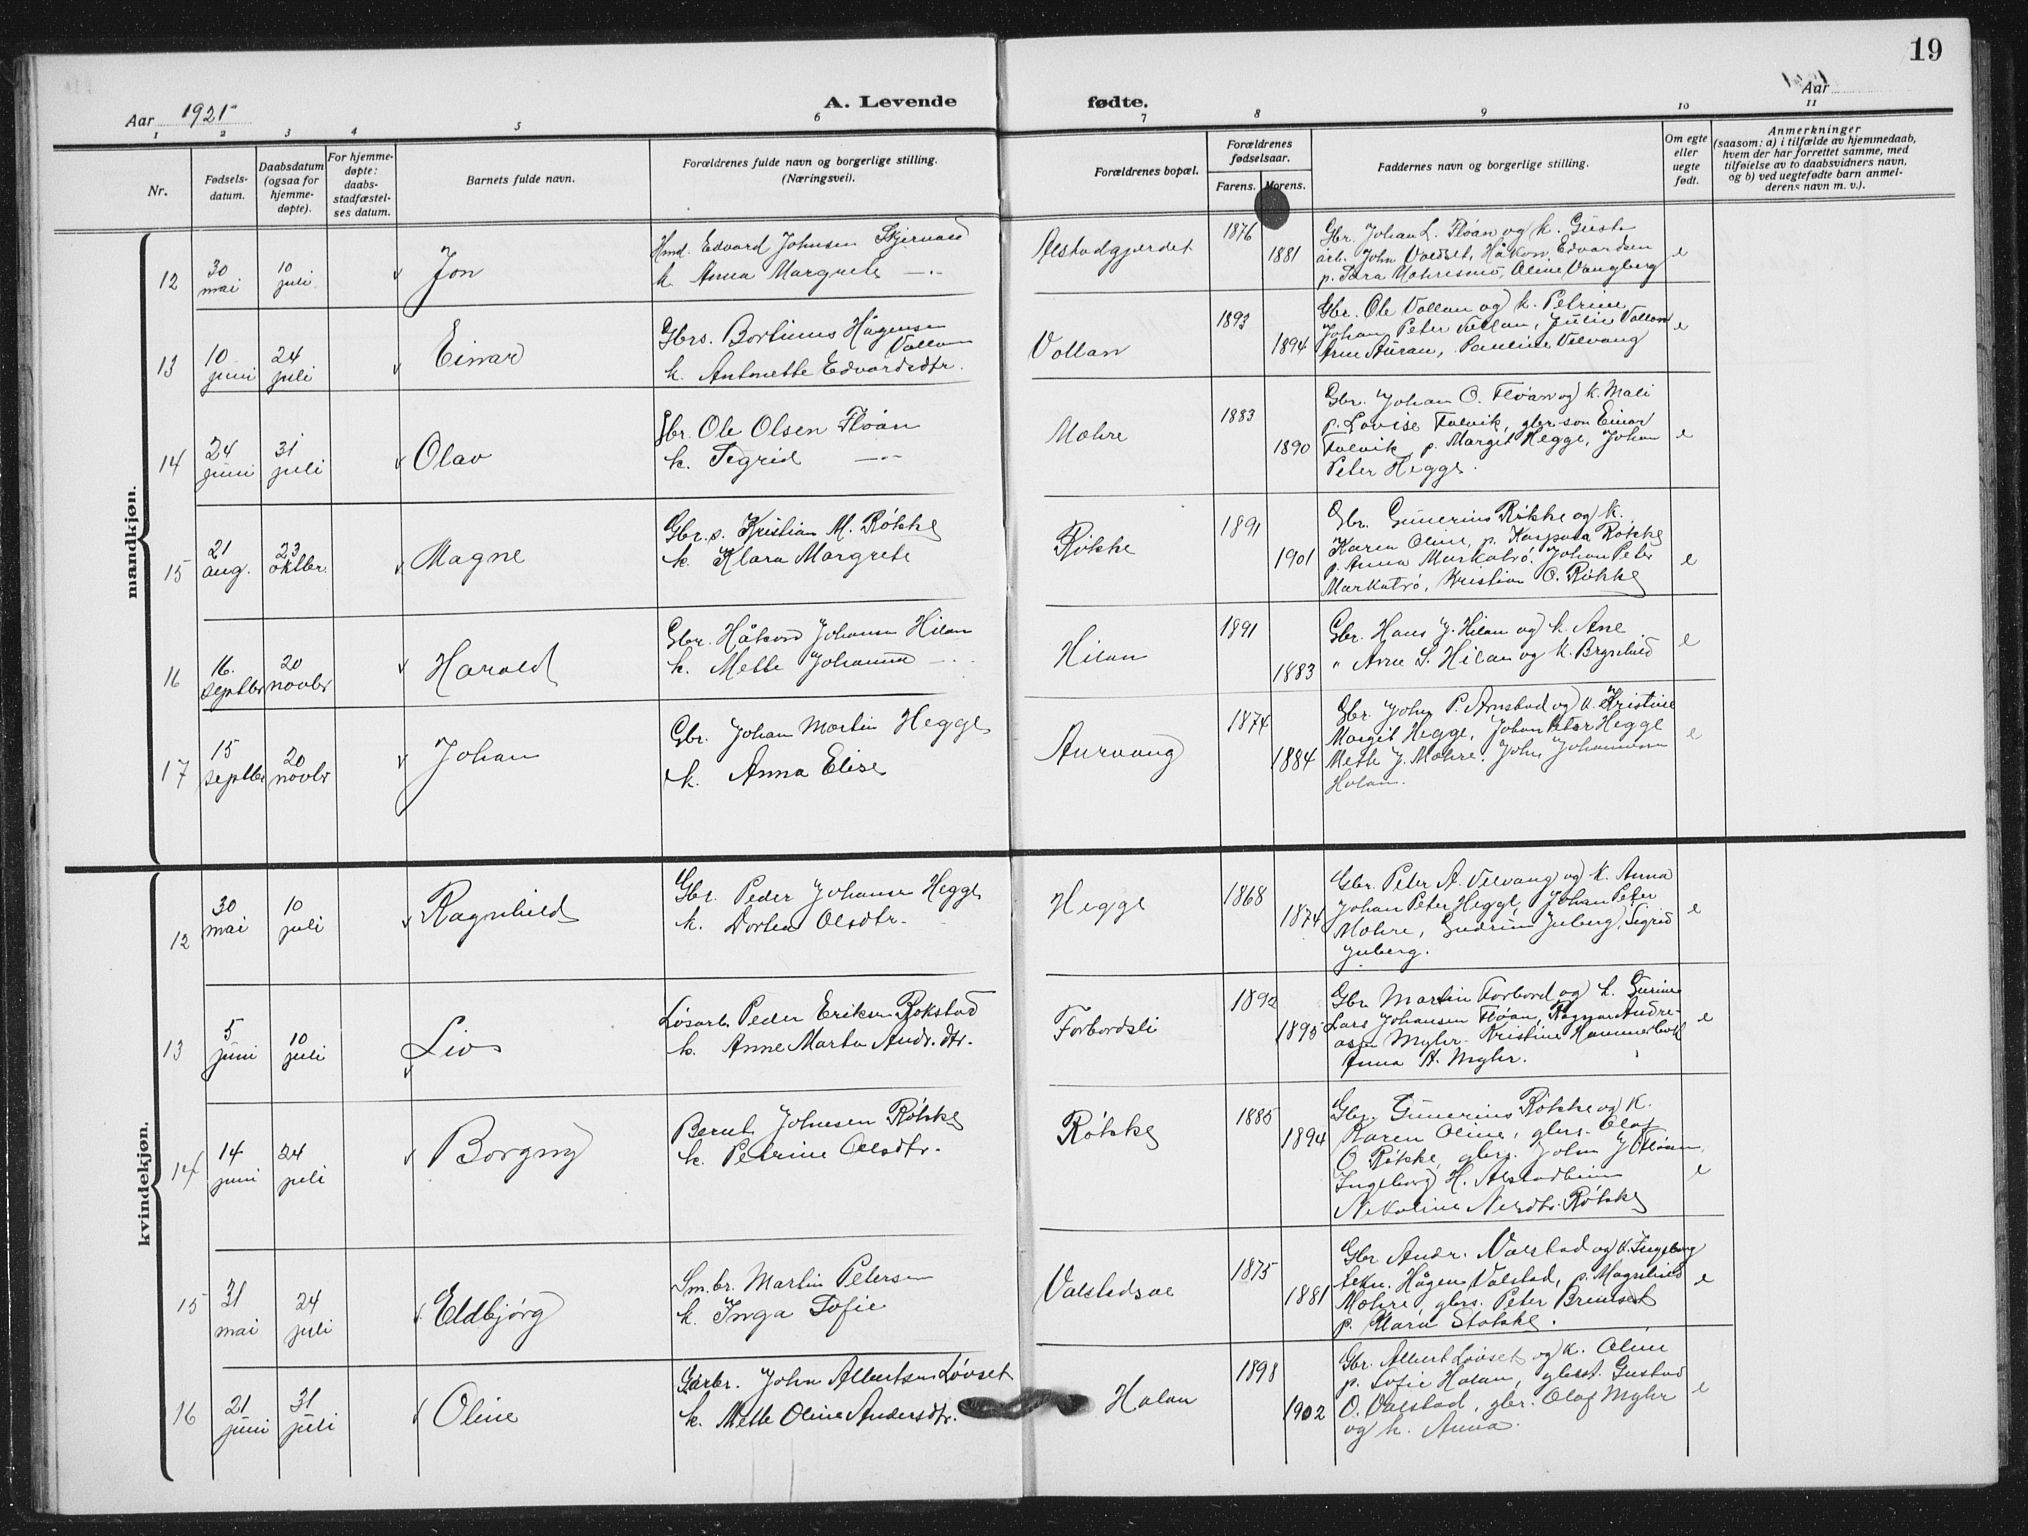 19
Aar 1921
A. Levende fødte.
Aar
1 2 3 4 5 6 7 8 9 10 11
Nr.
Fødsels-
datum.
Daabsdatum
(ogsaa for
hjemme-
døpte).
For hjemme-
døpte:
daabs-
stadfæstel-
ses datum.
Barnets fulde navn.
Forældrenes fulde navn og borgerlige stilling.
(Næringsvei).
Forældrenes bopæl.
Forældrenes
fødselsaar.
Farens. Morens.
Faddernes navn og borgerlige stilling.
Om egte
eller
uegte
født.
Anmerkninger
(saasom: a) i tilfælde av hjemmedaab,
hvem der har forrettet samme, med
tilføielse av to daabsvidners navn,
og b) ved uegtefødte barn anmel-
derens navn m. v.).
mandkjøn.
12
30
mai
10
juli
Jon
Hmd. Edvard Johnsen Skjervald
k. Anna Margrete —"—
Alstadgjerdet
1876
1881
Gbr. Johan L. Fløan og k. Gusta
arb. John Valdset, Håkon Edvardsen
p. Sara Mohresmo, Oline Vangberg
e
13
10
juni
24
juli
Einar
Gbrs. Bortinus Hågensen
Vollan
k. Antonette Edvardsdtr.
Vollan
1893
1894
Gbr. Ole Vollan og k. Petrine
Johan Peter Vollan, Julie Vollan
Arne Auran, Pauline Velvang
e
14
24
juni
31
juli
Olav
Gbr. Ole Olsen Fløan
k. Sigrid —"—
Mohre
1883
1890
Gbr. Johan O. Fløan og k. Mali
p. Lovise Folvik, gbr.son Einar
Folvik, p. Margit Hegge, Johan
Peter Hegge.
e
15
21
aug.
23
oktbr.
Magne
Gbr.s. Kristian M. Røkke
k. Klara Margrete
Røkke
1891
1901
Gbr. Gunerius Røkke og k.
Karen Oline, p. Kaspara Røkke
p. Anna Markatrø. Johan Peter
Markatrø, Kristian O. Røkke
e
16
16.
septbr
20
novbr
Harald
Gbr. Håkon Johansen Hilan
k. Mette Johanna —"—
Hilan
1891
1883
Gbr. Hans J. Hilan og k. Ane
" Arne S. Hilan og k. Brynhild
e
17
15
septbr
20
novbr
Johan
Gbr. Johan Martin Hegge
k. Anna Elise
Aurvang
1874
1884
Gbr. John P. Arnstad og k. Kristine
Margit Hegge, Johan Peter Hegge
Meth J. Mohre. John Johannesen
Holan.
e
kvindekjøn.
12
30
mai
10
juli
Ragnhild
Gbr. Peder Johansen Hegge
k. Dortea Olsdtr.
Hegge
1868
1874
Gbr. Peter A. Velvang og k. Anna
Johan Peter Hegge, Johan Peter
Mohre, Gudrun Juberg, Sigrid
Juberg.
e
13
5
juni
10
juli
Liv
Løsarb. Peder Eriksen Rokstad
k. Anne Marta Andr.dtr.
Forbordsli
1892
1895
Gbr Martin Forbord og k. Gurine
Lars Johansen Fløan, Ragnar Andre-
asen Myhr. Kristine Hammerbek
Anna A. Myhr.
e
14
14
juni
24
juli
Borgny
Bernt Johnsen Røkke
k. Petrine Olsdtr.
Røkke
1885
1894
Gbr. Gunerius Røkke og k.
Karen Oline, gbrs. Olaf
O. Røkke, gbrs. John J. Fløan
Ingeborg H. Alstadheim
Nikoline Røkke
e
15
31
mai
24
juli
Eldbjørg
Sm.br. Martin Petersen
k. Inga Sofie
Valstadsve
1875
1881
Gbr Andr. Valstad og k. Ingeborg
Hågen Valstad, p. Magnhild
Mohre, gbrs. Peter Bremset
p. Mara Stokke.
e
16
21
juni
31
juli
Oline
Garbr. John Albertsen Løvset
k. Mette Oline Andersdtr.
Holan
1898
1902
Gbr. Albert Løvset og k. Oline
p. Sofie Holan, Gustad
O. Valstad, gbr. Olaf Myhr
og k. Anna.
e